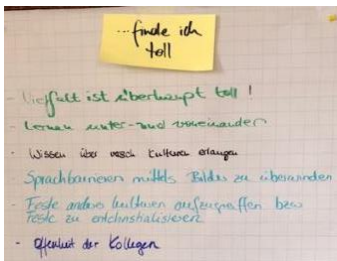 ...finde ich
toll
- Vielfalt ist überhaupt toll!
- Lernen unter- und voneinander
- Wissen über versch. Kulturen erlangen
- Sprachbarrieren mittels Bilder zu überwinden
- Feste anderer Kulturen aufzugreifen bzw
Feste zu
- Offenheit der Kollegen